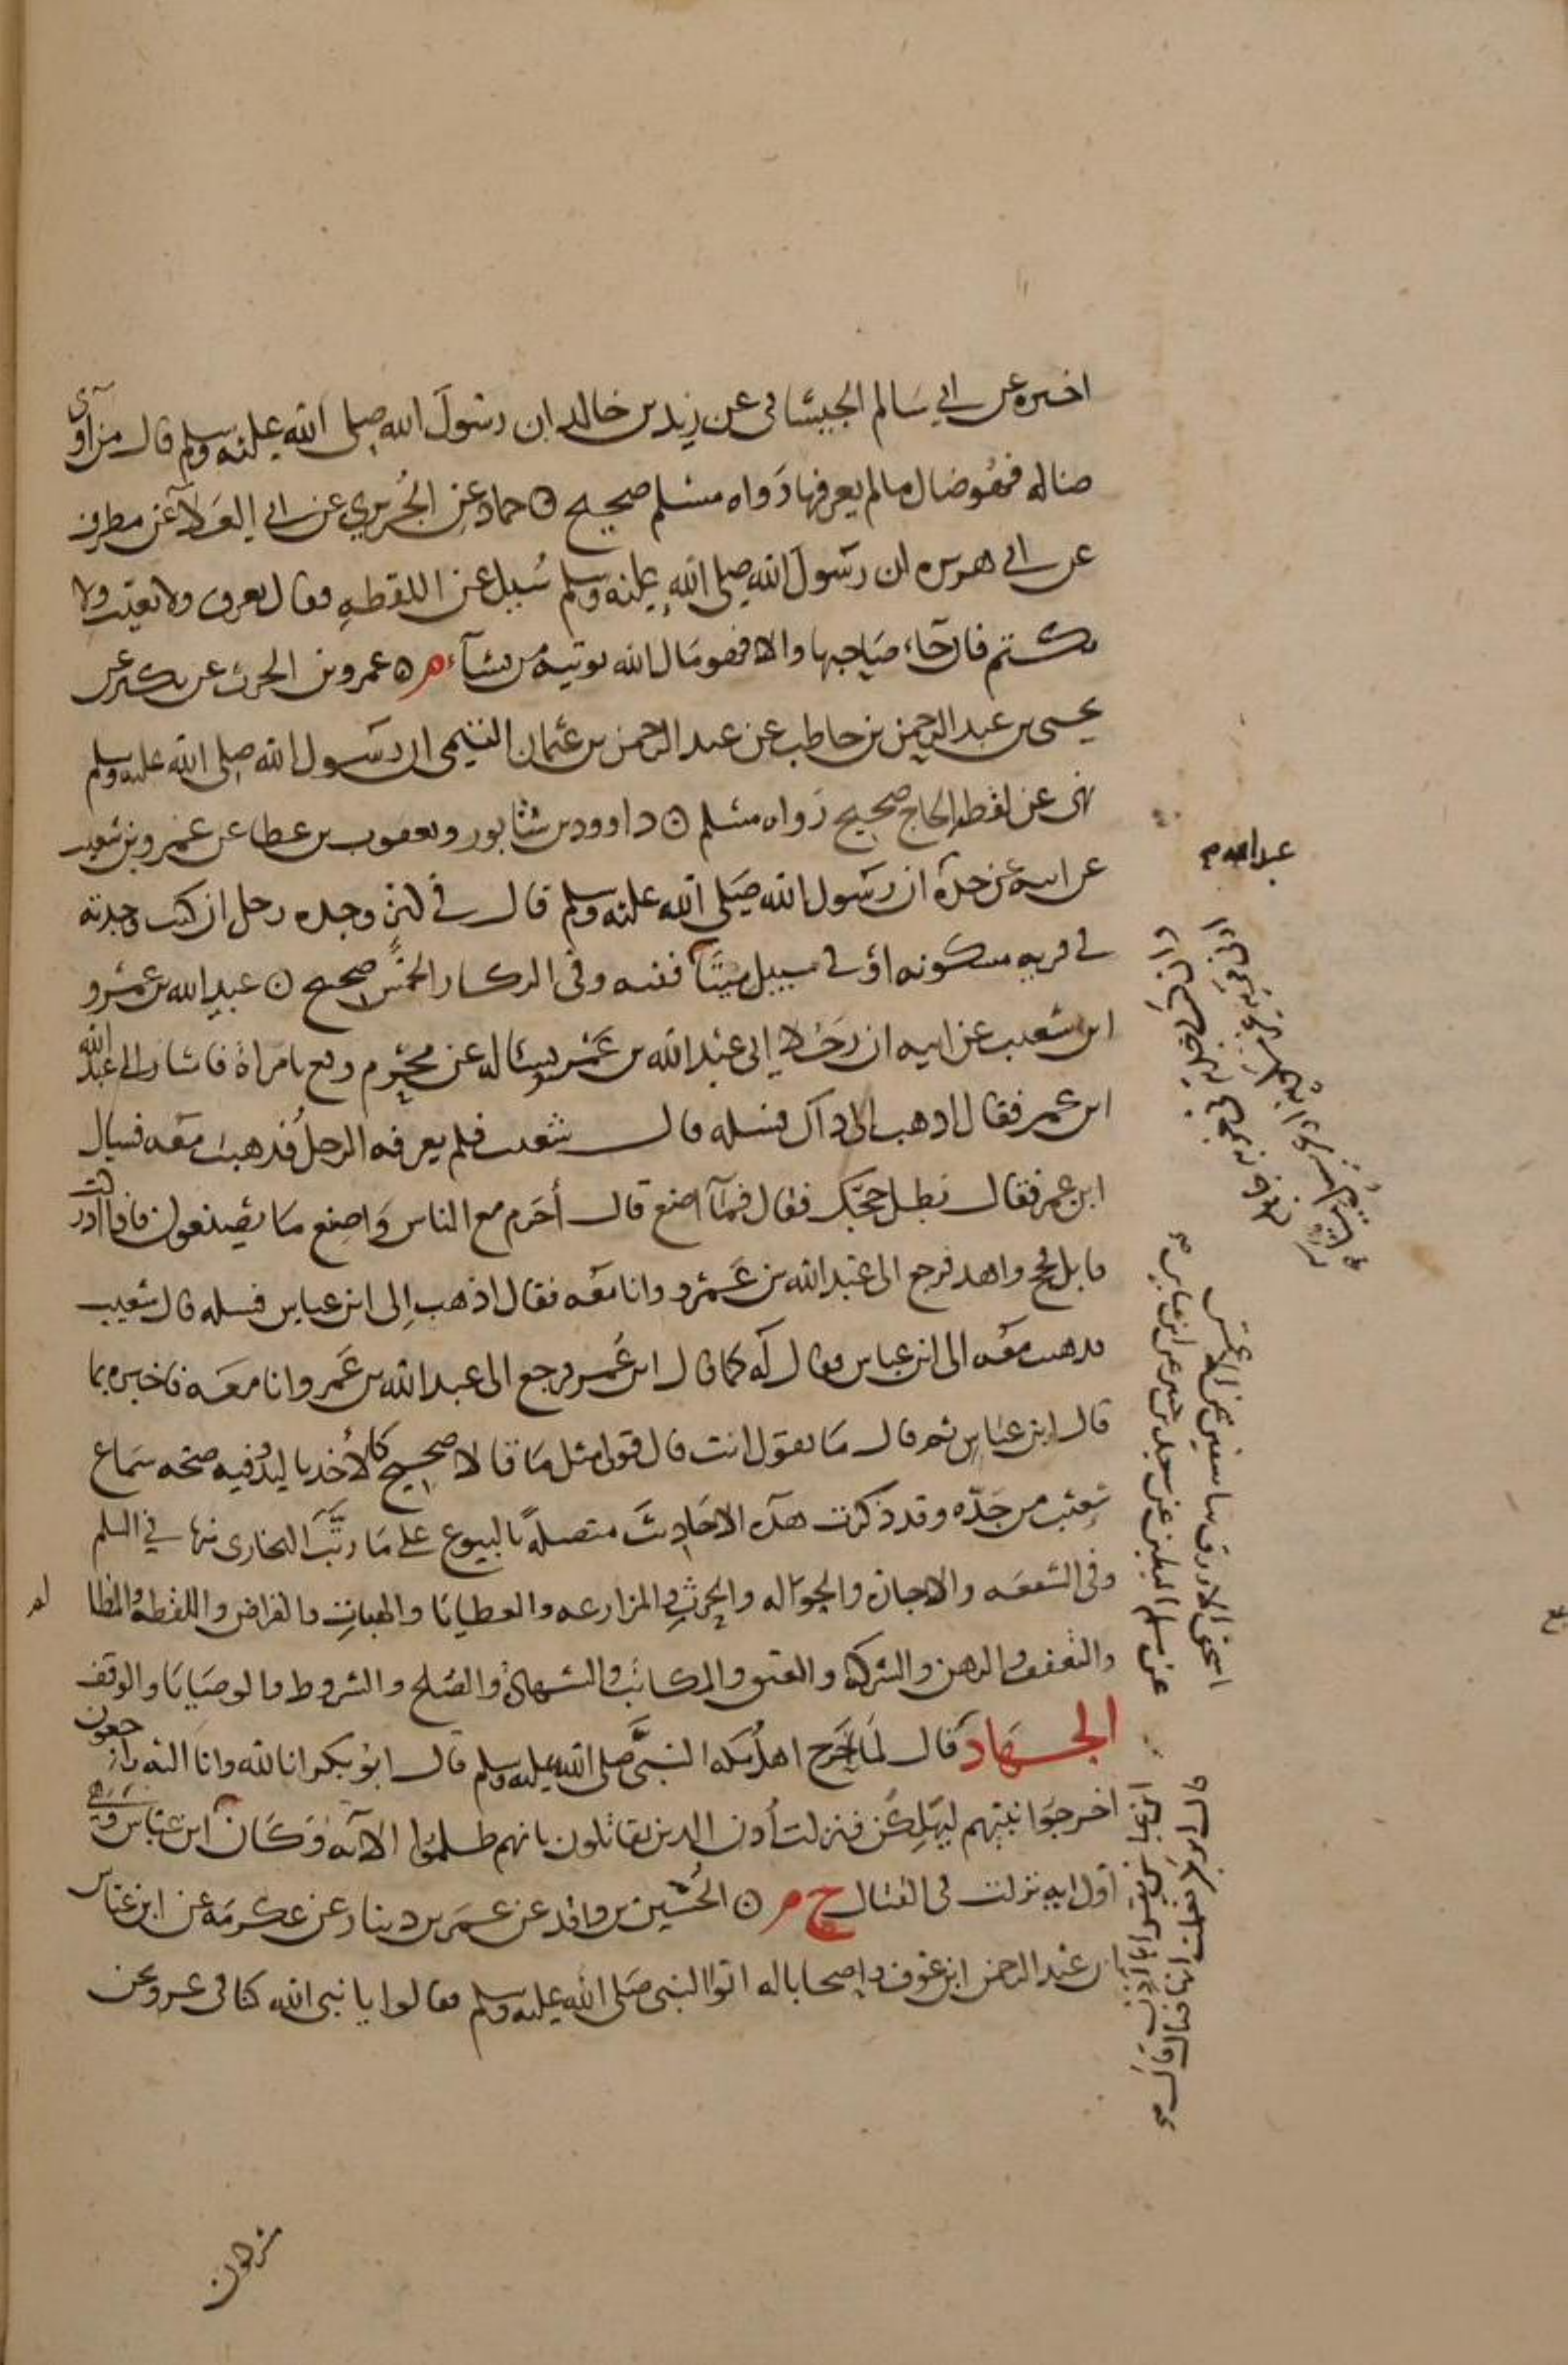 اخبره عن ابي سالم الجيشاني عن زيد بن خالد ان رسول الله صلى الله عليه وسلم قال من آوى
ضاله فهو ضال ما لم يعرفها رواه مسلم صحيح ۞ حماد عن الجُريري عن ابي العلاء عن مطرف
عن ابي هريره ان رسول الله صلى الله عليه وسلم سُيل عن اللقطه فقال تعرف ولا تغيب ولا
تكتم فان جاء صاحبها والا فهو مال الله يوتيه من يشآء م ۞ عمرو بن الحرث عن بكير عن
يحيى بن عبد الرحمن بن حاطب عن عبد الرحمن بن عثمان التيمي ان رسول الله صلى الله عليه وسلم
نهى عن لقطه الحاج صحيح رواه مسلم ۞ داوود بن شابور ويعقوب بن عطا عن عمرو بن شعيب
عن ابيه عن جده ان رسول الله صلى الله عليه وسلم قال في كنز وجده رجل ان كنت وجدته
في قريه مسكونه او في سبيل ميتآ فعرفه وفي الركاز الخمس صحيح ۞ عبيد الله بن عمرو
ابن شعيب عن ابيه ان رجلا اتى عبد الله بن عمرو يساله عن محرم وقع بامراة فاشار الى عبد الله
ابن عمر فقال اذهب الى ذاك فسله قال شعيب فلم يعرفه الرجل فذهبت معه فسال
ابن عمر فقال بطل حجك فقال فما اصنع قال أحرم مع الناس واصنع ما يصنعون فاذا ادركت
قابل فحج واهد فرجع الى عبد الله بن عمرو وانا معه فقال اذهب الى ابن عباس فسله قال شعيب
فذهبت معه الى ابن عباس فقال له كما قال ابن عمر فرجع الى عبد الله بن عمرو وانا معه فاخبره بما
قال ابن عباس ثم قال ما تقول انت قال قولي مثل ما قالا صحيح كالأخذ باليد فيه صحه سماع
شعيب من جده وقد ذكرت هذه الاحاديث متصلة بالبيوع على ما رتب البخاري منها في السلم
وفي الشفعه والاجاره والحواله والحرث والمزارعه والعطايا والهبات والقراض واللقطه والمظالم
والنفقه والرهن والشركه والعتق والمكاتب والشهاده والصلح والشروط والوصايا والوقف
الجهاد قال لما اخرج اهل مكه النبي صلى الله عليه وسلم قال ابو بكر انا لله وانا اليه راجعون
اخرجوا نبيهم ليهلكن فنزلت أذن للذين يقاتلون بانهم ظلموا الآيه وكان ابن عباس
أول ايه نزلت في القتال خ م ۞ الحسين بن واقد عن عمر بن دينار عن عكرمه عن ابن عباس
ان عبد الرحمن ابن عوف واصحابا له اتوا النبي صلى الله عليه وسلم فقالوا يا نبي الله كنا في عز ونحن
عبد الله
اسحق الازرق سا سفين عن الاعمش
عن مسلم البطين عن سعيد بن جبير عن ابن عباس